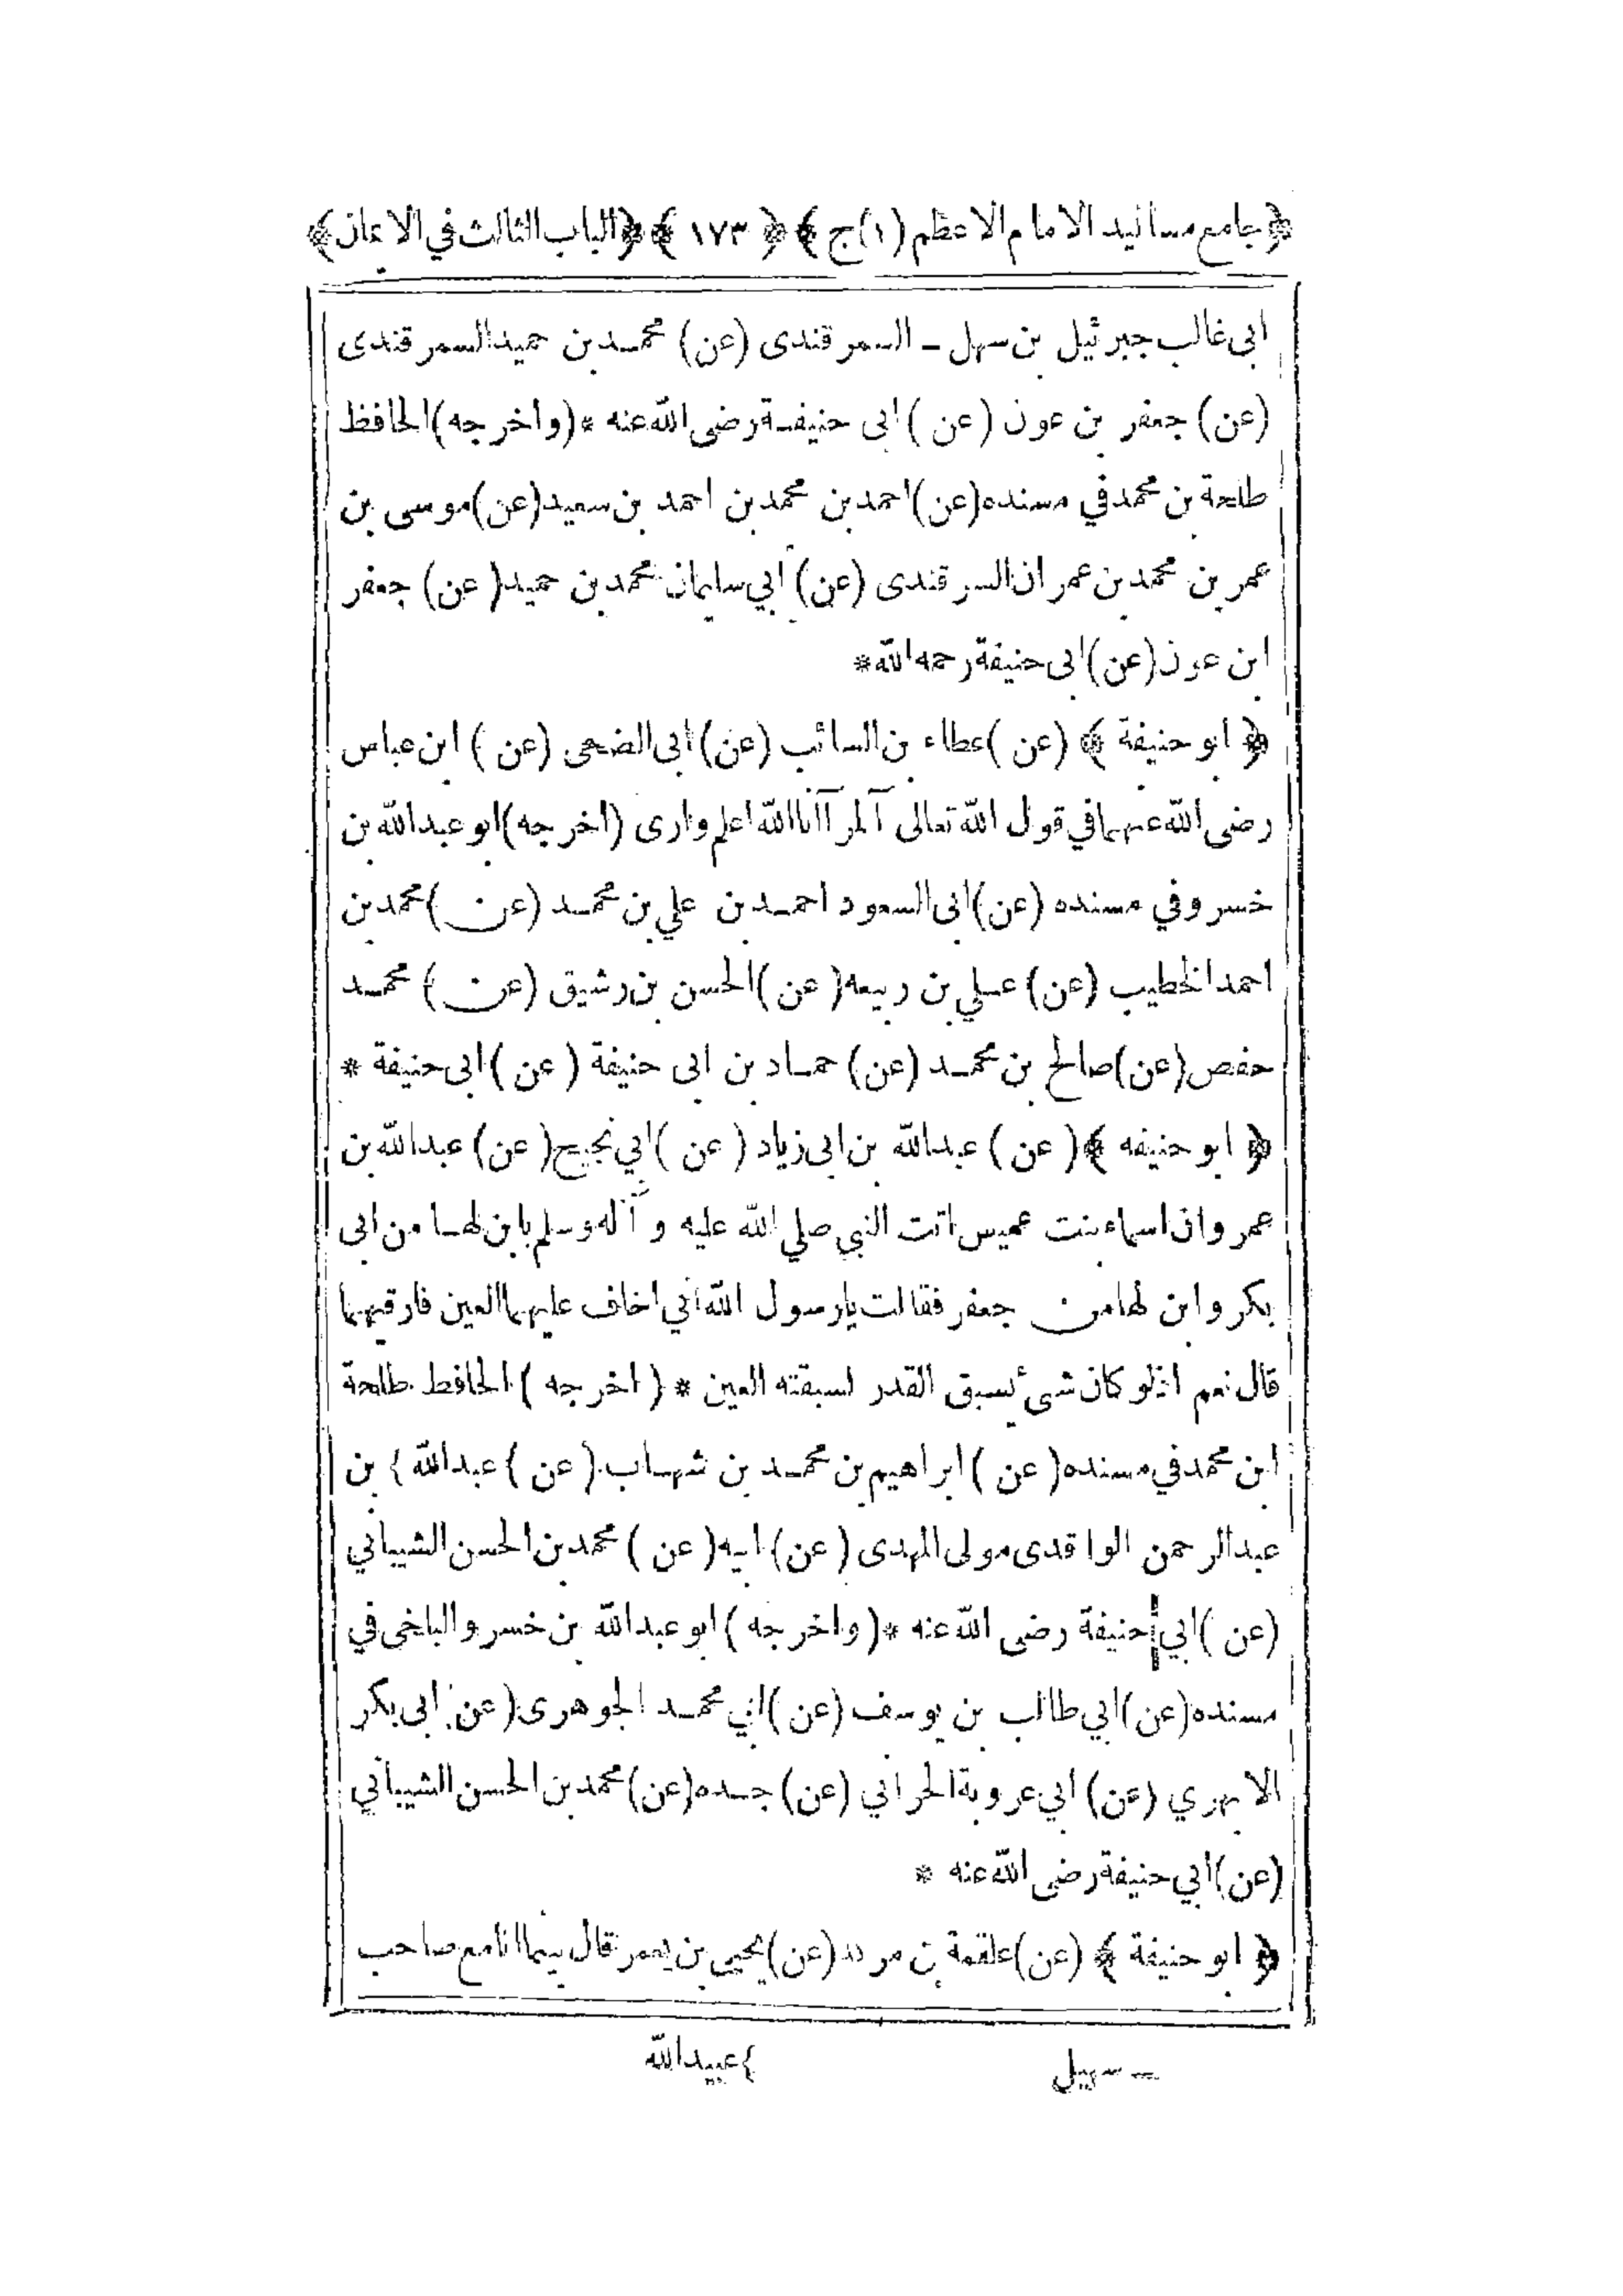 ﴿جامع مسانيد الامام الاعظم (١)ج﴾ ﴿ ١٧٣ ﴾ ﴿الباب الثالث في الايمان﴾
ابى غالب جبرئيل بن سهل ـ السمرقندى (عن) محمد بن حميد السمرقندى
(عن) جعفر بن عون (عن) ابى حنيفة رضى الله عنه * (واخرجه) الحافظ
طلحة بن محمد في مسنده (عن) احمد بن محمد بن احمد بن سعيد (عن) موسى بن
عمر بن محمد بن عمران السرقندى (عن) ابي سليمان محمد بن حميد (عن) جعفر
ابن عون (عن) ابى حنيفة رحمه الله *
﴿ ابو حنيفة ﴾ (عن) عطاء بن السائب (عن) ابى الضحى (عن) ابن عباس
رضى الله عنهما في قول الله تعالى آلمر آانا الله اعلم وارى (اخرجه) ابو عبد الله بن
خسرو في مسنده (عن) ابى السعود احمد بن علي بن محمد (عن) محمد بن
احمد الخطيب (عن) على بن ربيعه (عن) الحسن بن رشيق (عن) محمد
حفص (عن) صالح بن محمد (عن) حماد بن ابى حنيفة (عن) ابى حنيفة *
﴿ ابو حنيفه ﴾ (عن) عبد الله بن ابى زياد (عن) ابي نجيح (عن) عبد الله بن
عمر وان اسماء بنت عميس اتت النبي صلي الله عليه و آله وسلم بابن لها من ابى
بكر وابن لها من جعفر فقالت يا رسول الله اني اخاف عليهما العين فارقيهما
قال نعم اذ لو كان شئ يسبق القدر لسبقته العين * (اخرجه) الحافظ طلحة
ابن محمد في مسنده (عن) ابراهيم بن محمد بن شهاب (عن) عبد الله } بن
عبد الرحمن الواقدى مولى المهدى (عن) ابيه (عن) محمد بن الحسن الشيباني
(عن) ابي حنيفة رضى الله عنه * (واخرجه) ابو عبد الله بن خسرو البلخى في
مسنده (عن) ابي طالب بن يوسف (عن) ابي محمد الجوهرى (عن) ابى بكر
الابهري (عن) ابي عروبة الحراني (عن) جده (عن) محمد بن الحسن الشيباني
(عن) ابي حنيفة رضى الله عنه *
﴿ ابو حنيفة ﴾ (عن) علقمة بن مرثد (عن) يحيى بن يعمر قال بينما انا مع صاحب
ـ سهيل } عبيد الله